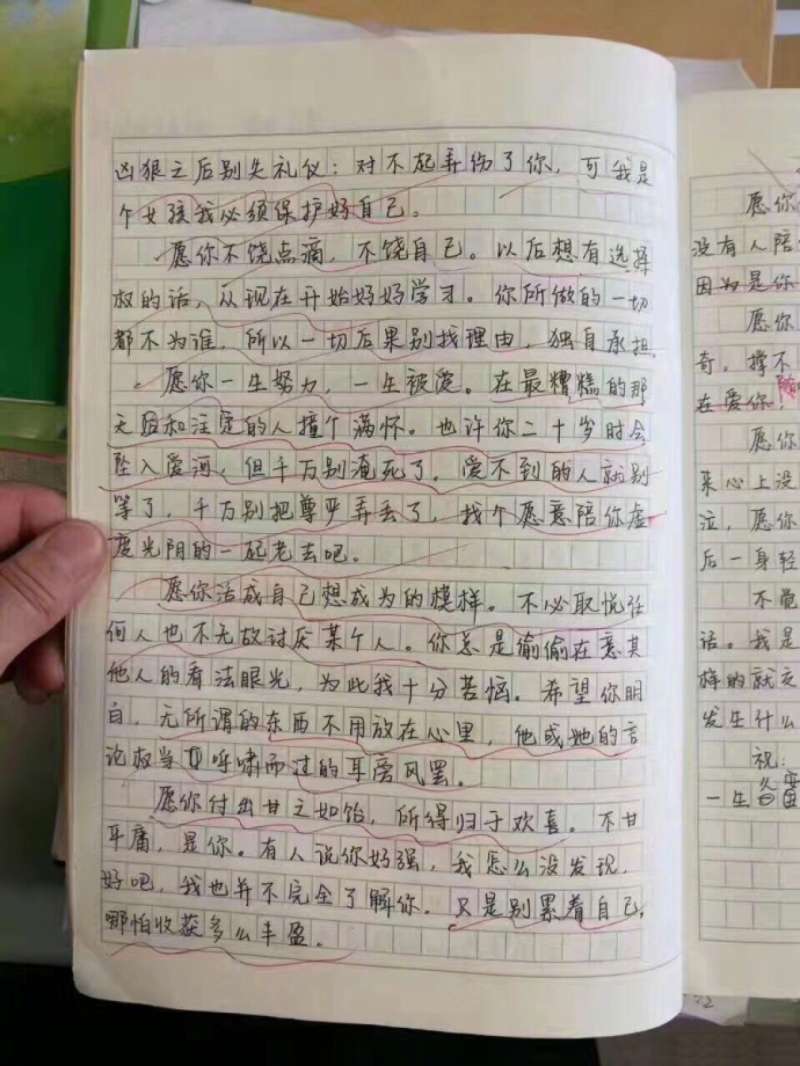 凶狠之后别失礼仪：对不起弄伤了你，可我是
个女孩我必须保护好自己。
愿你不饶点滴，不饶自己。以后想有选择
权的话，从现在开始好好学习。你所做的一切
都不为谁，所以一切后果别找理由，独自承担。
愿你一生努力，一生被爱。在最糟糕的那
天因和注定的人撞个满怀。也许你二十岁时会
坠入爱河，但千万别淹死了。爱不到的人就别
等了，千万别把尊严弄丢了，找个愿意陪你虚
度光阴的一起老去吧。
愿你活成自己想成为的模样。不必取悦任
何人也不无故讨厌某个人。你总是偷偷在意其
他人的看法眼光，为此我十分苦恼。希望你明
白，无所谓的东西不用放在心里，他或她的言
论权当呼啸而过的耳旁风罢。
愿你付出甘之如饴，所得归于欢喜。不甘
平庸，是你。有人说你好强，我怎么没发现，
好吧，我也并不完全了解你。只是别累着自己，
哪怕收获多么丰盈。
愿你
没有人陪
因为是你
愿你
奇，撑不
在爱你，
愿你
来心上没
泣，愿你
后一身轻
不觉
话。我是
样的就交
发生什么
祝：
一生